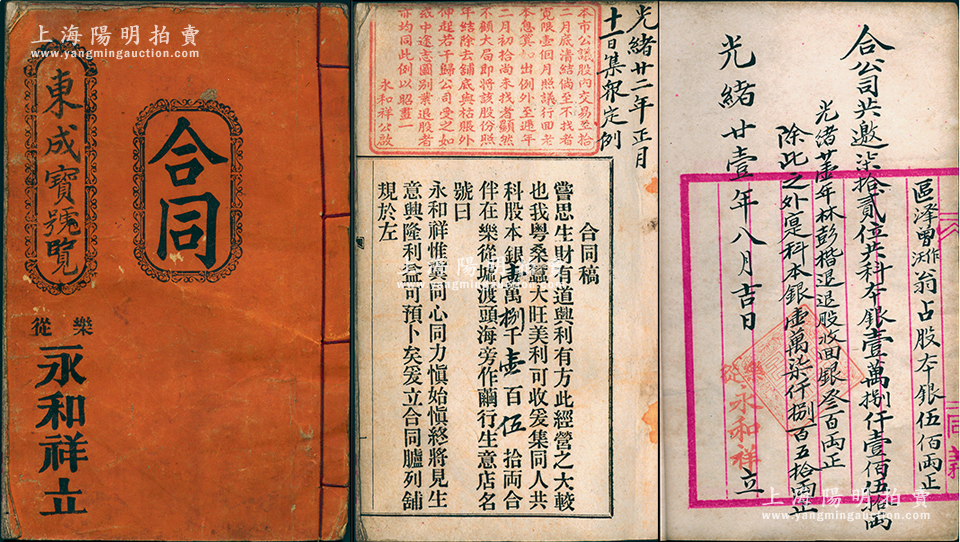 上海陽明拍賣
www.yangmingauction.com
合同
東成寶號覽
樂從
永和祥立
光緒廿二年正月
十一日集叙定例
本市公議股內交易至拾
二月底清結倘至不找者
寬限壹個月照議行回老
本息冀如出例外至過年
二月初拾尚未找者顯然
不顧大局即將該股份照
年結除去舖底與枯賬外
伸起若干歸公司受之如
或中途志圖別業退股者
亦均同此例以昭畫一
永和祥公啟
合同稿
嘗思生財有道興利有方此經營之大較
也我粵桑蠶大旺美利可收爰集同人共
科股本銀壹萬捌千壹百伍拾両合
伴在樂從墟渡頭海旁作繭行生意店名
號曰
永和祥惟冀同心同力慎始慎終將見生
意興隆利益可預卜矣爰立合同臚列舖
規於左
上海陽明拍賣
www.yangmingauction.com
區澤曽 翁占股本銀伍佰両正
合公司共邀柒拾貳位共科本銀壹萬捌仟壹佰伍拾両
光緒 年林彭楷退退股收回銀叁百両正
除此之外寔科本銀壹萬柒仟捌百五拾両正
光緒廿壹年八月吉日
樂從永和祥立
同義
上海陽明拍賣
www.yangmingauction.com